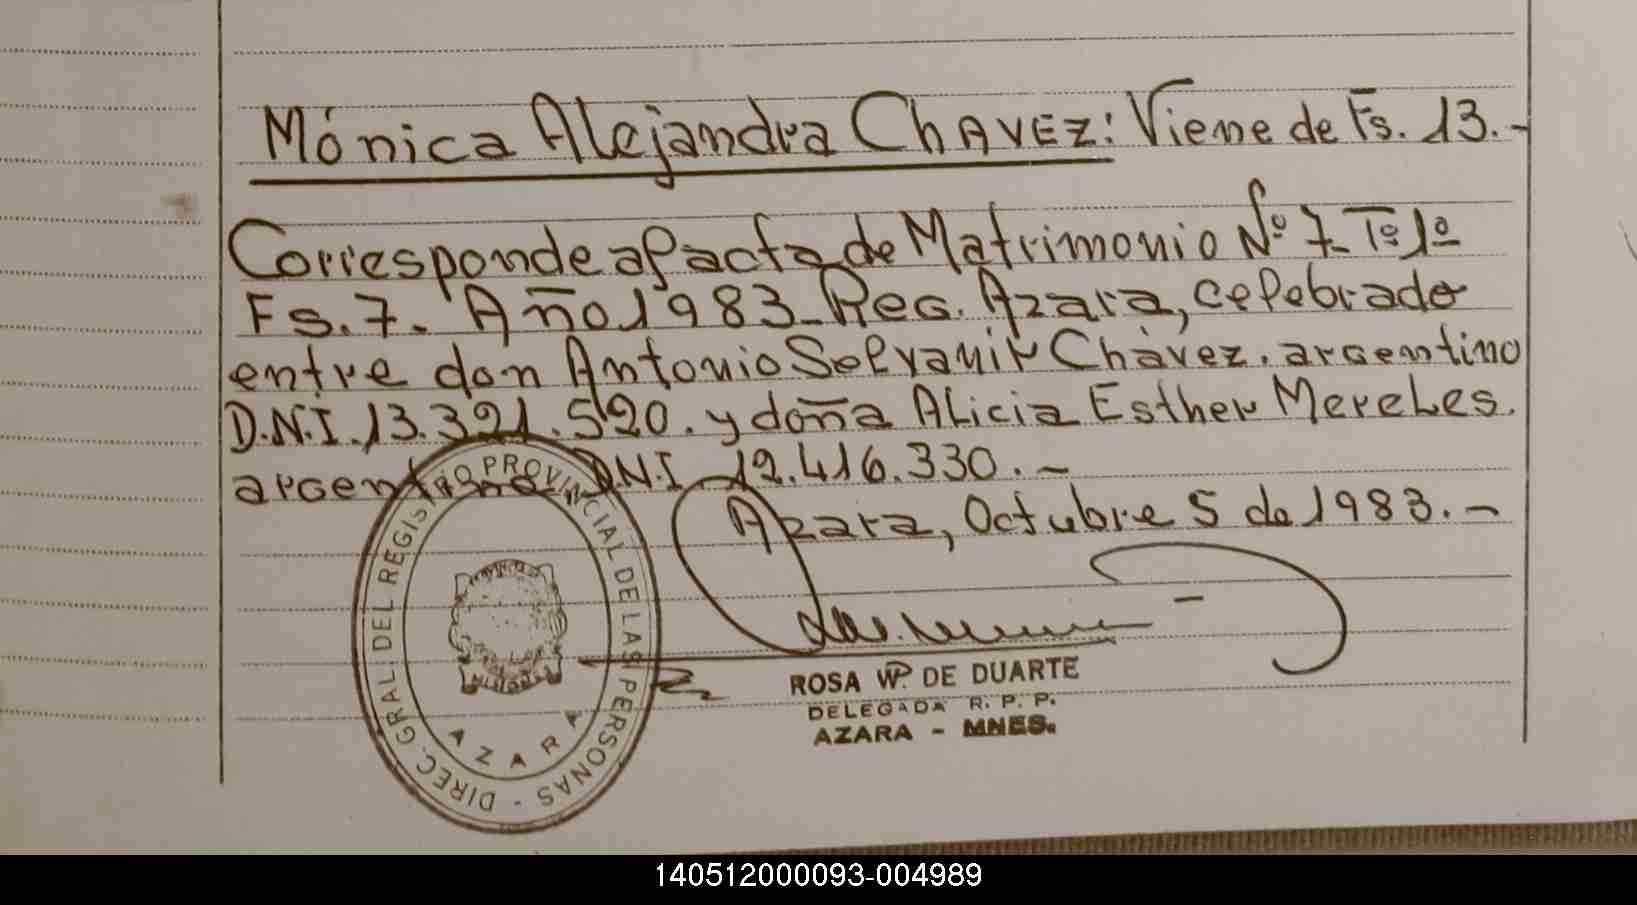 Mónica Alejandra CHAVEZ: Viene de Fs. 13.-
Corresponde al acta de Matrimonio Nº 7- Tº 1º
Fs. 7. Año 1983- Reg. Azara, celebrado
entre don Antonio Selvanir Chávez. argentino
D.N.I. 13.321.520. y doña Alicia Esther Mereles.
argentina D.N.I. 12.416.330.-
Azara, Octubre 5 de 1983.-
DIREC. GRAL. DEL REGISTRO PROVINCIAL DE LAS PERSONAS -
AZARA
ROSA W P. DE DUARTE
DELEGADA R. P. P.
AZARA - MNES.
140512000093-004989